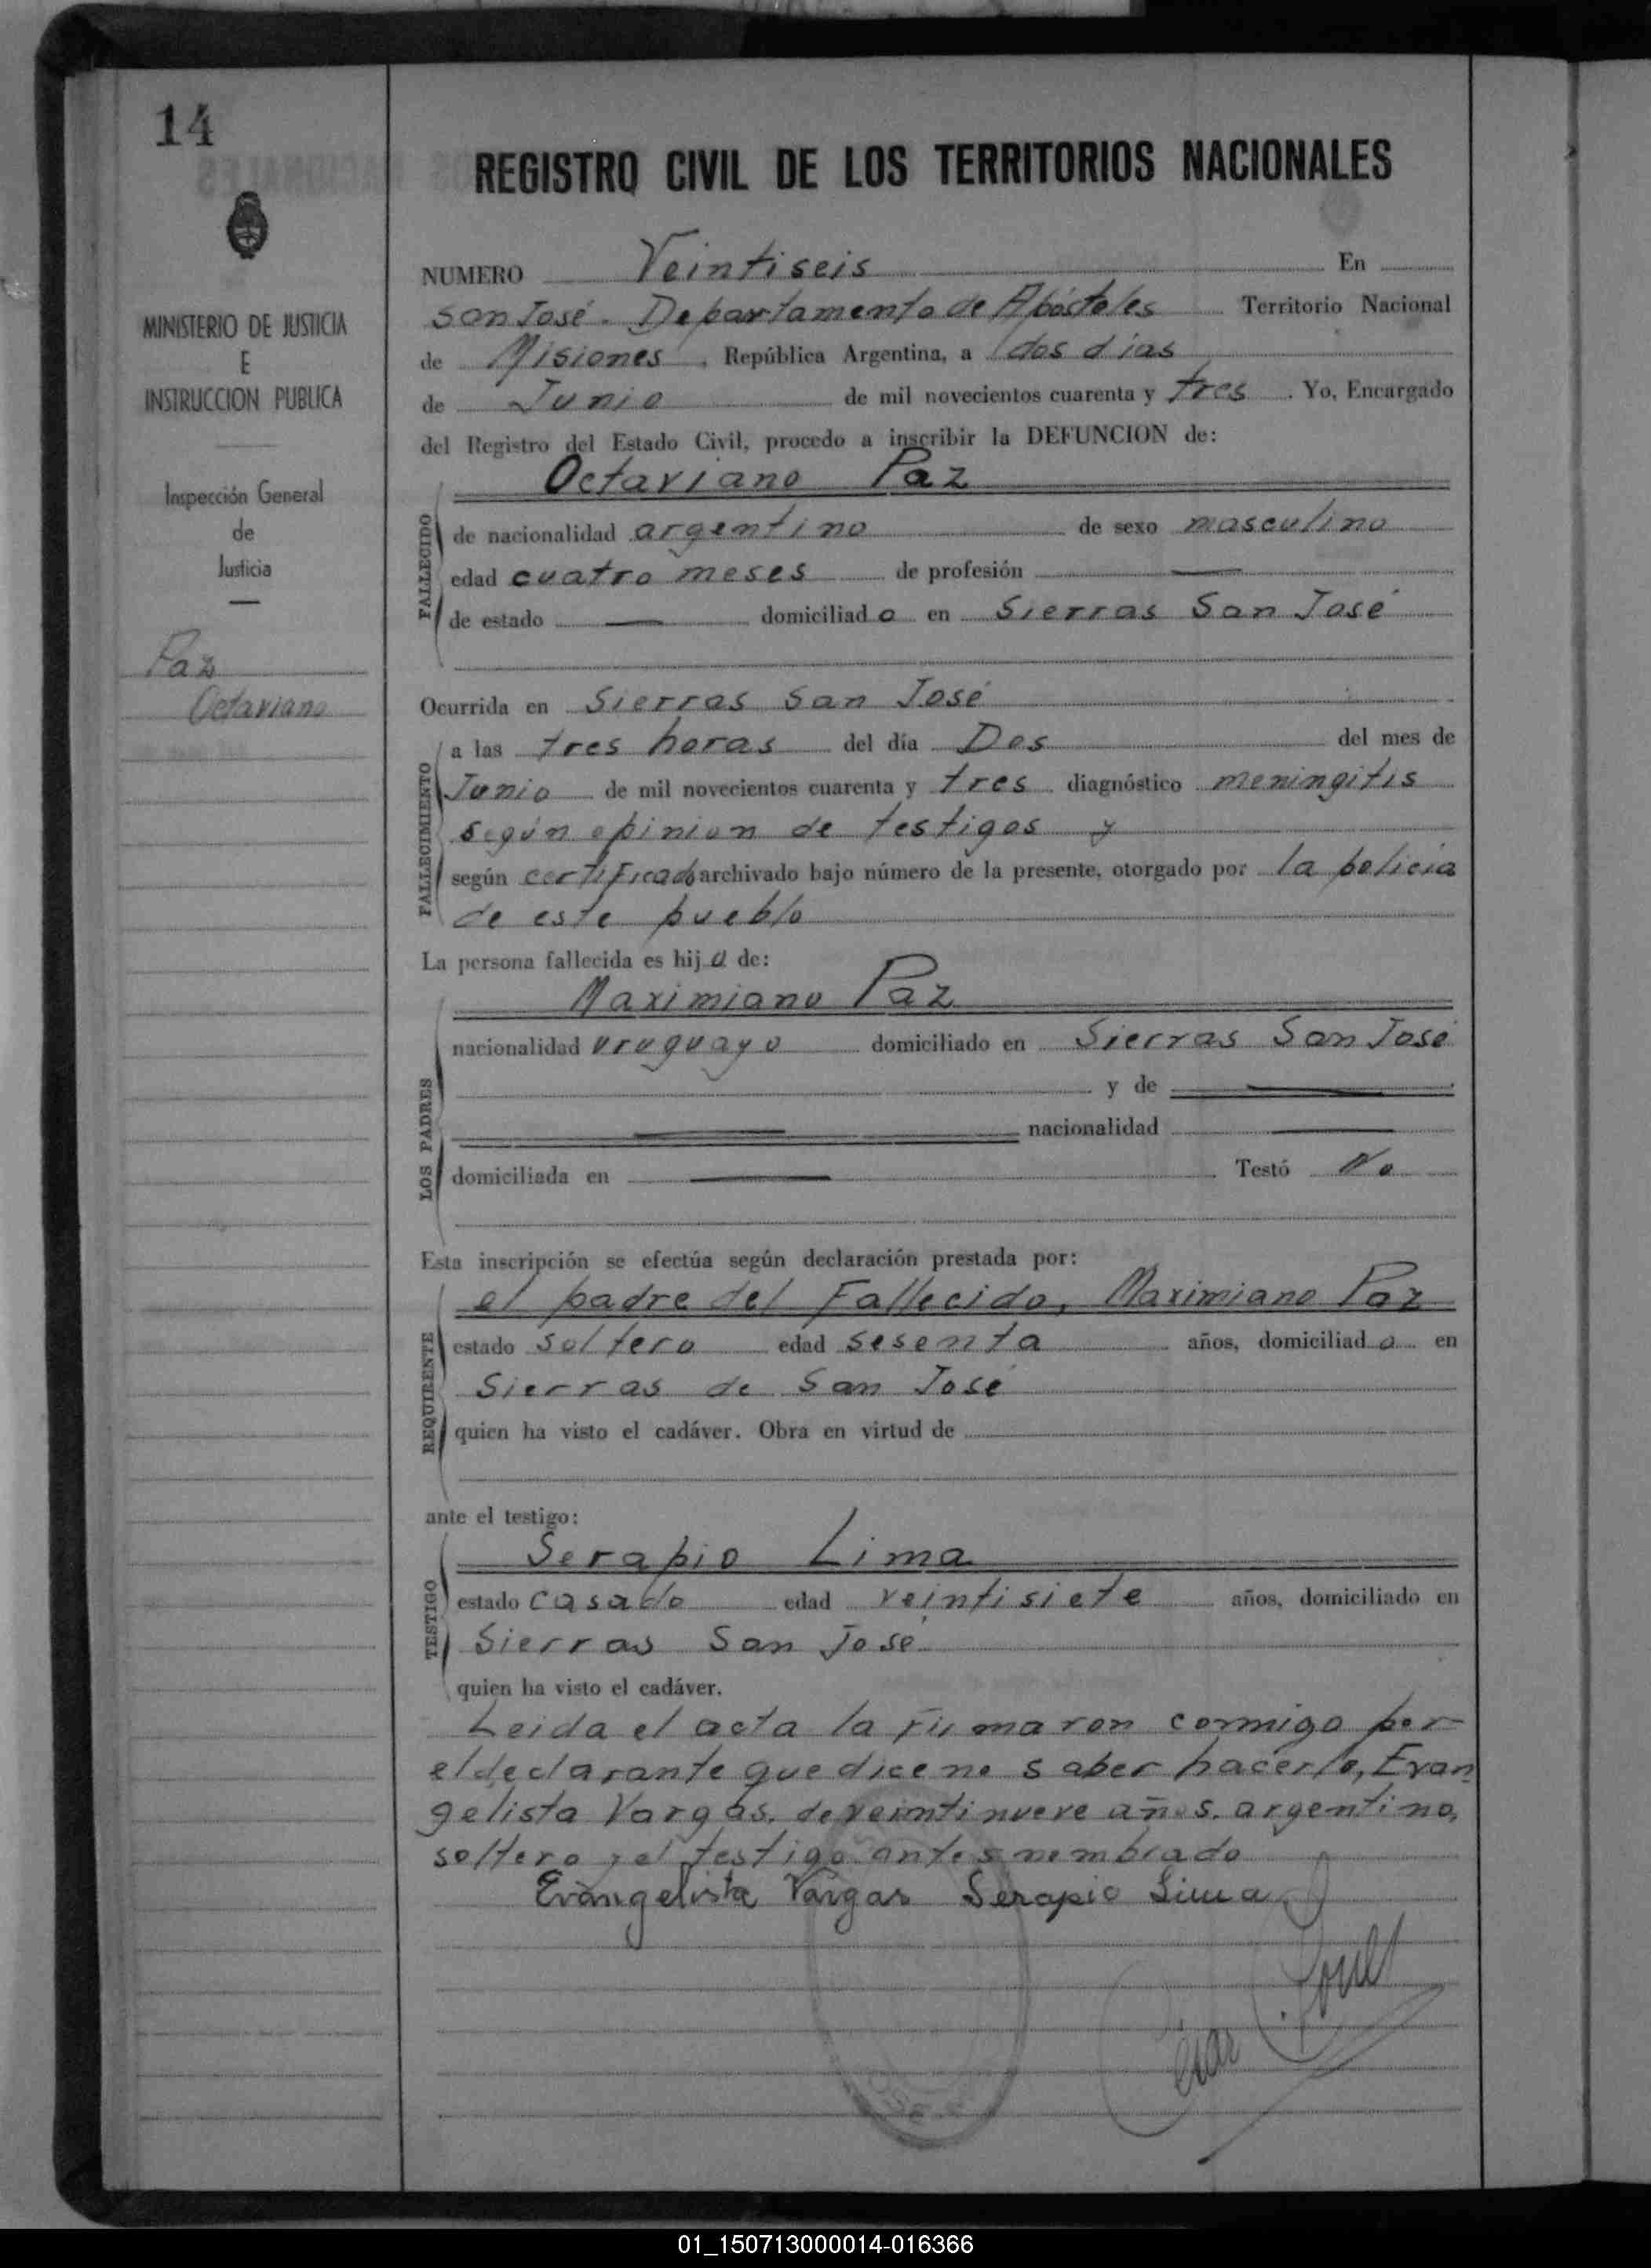 14
MINISTERIO DE JUSTICIA
E
INSTRUCCION PUBLICA
Inspección General
de
Justicia
Paz
Octaviano
REGISTRO CIVIL DE LOS TERRITORIOS NACIONALES
NUMERO Veintiseis En
San José. Departamento de Apóstoles Territorio Nacional
de Misiones, República Argentina, a dos dias
de Junio de mil novecientos cuarenta y tres. Yo, Encargado
del Registro del Estado Civil, procedo a inscribir la DEFUNCION de:
Octaviano Paz
FALLECIDO
de nacionalidad argentino de sexo masculino
edad cuatro meses de profesión —
de estado — domiciliado en Sierras San José
Ocurrida en Sierras San José
FALLECIMIENTO
a las tres horas del día Dos del mes de
Junio de mil novecientos cuarenta y tres diagnóstico meningitis
según opinion de testigos y
según certificado archivado bajo número de la presente, otorgado por la policia
de este pueblo
La persona fallecida es hijo de:
Maximiano Paz
LOS PADRES
nacionalidad uruguayo domiciliado en Sierras San José
y de —
— nacionalidad —
domiciliada en — Testó No
Esta inscripción se efectúa según declaración prestada por:
el padre del Fallecido, Maximiano Paz
REQUIRENTE
estado soltero edad sesenta años, domiciliado en
Sierras de San José
quien ha visto el cadáver. Obra en virtud de
ante el testigo:
Serapio Lima
TESTIGO
estado casado edad veintisiete años, domiciliado en
Sierras San José
quien ha visto el cadáver.
Leida el acta la firmaron conmigo por
el declarante que dice no saber hacerlo, Evan
gelista Vargas, de veintinueve años, argentino,
soltero y el testigo antes nombrado
Evangelista Vargas Serapio Lima
01_150713000014-016366